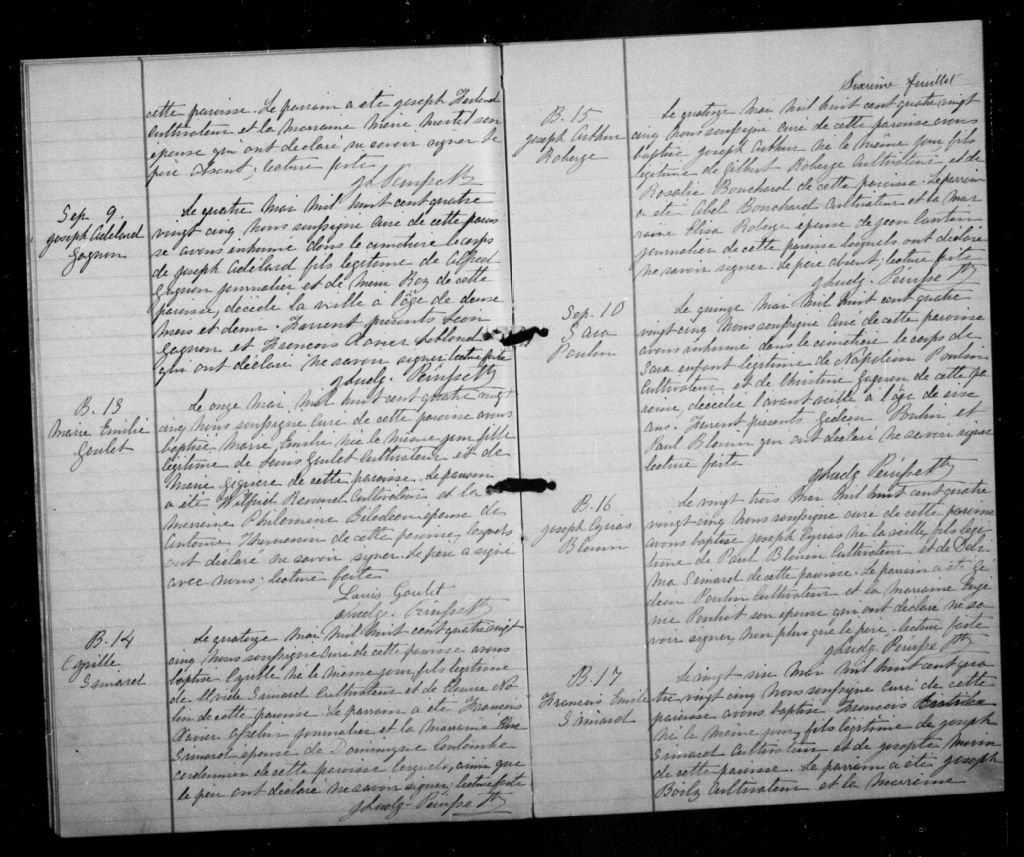 cette paroisse. Le parrain a été joseph
cultivateur et la marraine Marie Martel son
épouse qui ont déclaré ne savoir signer le
père absent, lecture faite
Sep. 9.
joseph Adelard
Gagnon
Le quatre mai mil huit cent quatre
vingt cinq nous soussigné curé de cette parois
se avons inhumé dans le cimetière le corps
de joseph Adélard fils légitime de Alfred
Gagnon journalier et de Marie Roy de cette
paroisse, décédé la veille a l'âge de
mois et demi. Furent présents
Gagnon et Francois Xavier Leblond
qui ont déclaré ne savoir signer lecture faite
B. 13
Marie Emilie
Goulet
Le onze mai mil huit cent quatre vingt
cinq nous soussigné curé de cette paroisse avons
baptisé Marie Emilie née le même jour fille
légitime de Louis Goulet cultivateur et de
Marie Giguère de cette paroisse. Le parrain
a été Wilfrid cultivateur et la
marraine Philomène Bilodeau épouse de
Antoine de cette paroisse, lesquels
ont déclaré ne savoir signer. Le père a signé
avec nous; lecture faite
Louis Goulet
B. 14
Cyrille
Simard
Le quatorze mai mil huit cent quatre vingt
cinq nous soussigné curé de cette paroisse avons
baptisé Cyrille né le même jour, fils légitime
de Simard cultivateur et de
de cette paroisse. Le parrain a été Francois
Xavier journalier et la marraine
Simard épouse de Dominique Coulombe
cordonnier de cette paroisse lesquels, ainsi que
le père ont déclaré ne savoir signer, lecture faite
Sixième feuillet
B. 15
joseph Arthur
Roberge
Le quatorze mai mil huit cent quatre vingt
cinq nous soussigné curé de cette paroisse avons
baptisé joseph Arthur né le même jour fils
légitime de Gilbert Roberge cultivateur et de
Rosalie Bouchard de cette paroisse. Le parrain
a été Abel Bouchard cultivateur et la mar
raine Elisa Roberge épouse de jean
journalier de cette paroisse lesquels ont déclaré
ne savoir signer. Le père absent, lecture faite
Sep. 10
Sara
Poulin
Le quinze mai mil huit cent quatre
vingt cinq nous soussigné curé de cette paroisse
avons inhumé dans le cimetière le corps de
Sara enfant légitime de Napoléon Poulin
cultivateur et de Christine Gagnon de cette pa
roisse, décédée l'avant veille a l'âge de sise
ans. Furent présents Gédéon Poulin et
Paul Blouin qui ont déclaré ne savoir signer
lecture faite
B. 16
joseph Cyrias
Blouin
Le vingt trois mai mil huit cent quatre
vingt cinq nous soussigné curé de cette paroisse
avons baptisé joseph Cyrias né la veille, fils légi
time de Paul Blouin cultivateur et de Deli
ma Simard de cette paroisse. Le parrain a été Gé
déon Poulin cultivateur et la marraine Eugé
nie Pouliot son épouse qui ont déclaré ne sa
voir signer, non plus que le père. lecture faite
B. 17
Francois Emile
Simard
Le vingt sise mai mil huit cent qua
tre vingt cinq nous soussigné curé de cette
paroisse avons baptisé Francois
né le même jour, fils légitime de joseph
Simard cultivateur et de josepte Morin
de cette paroisse. Le parrain a été joseph
cultivateur et la marraine